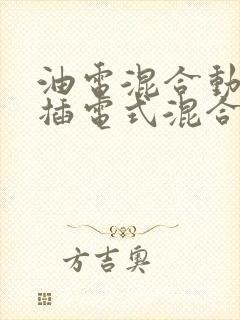 油電混合動
插電式混合
方吉奧